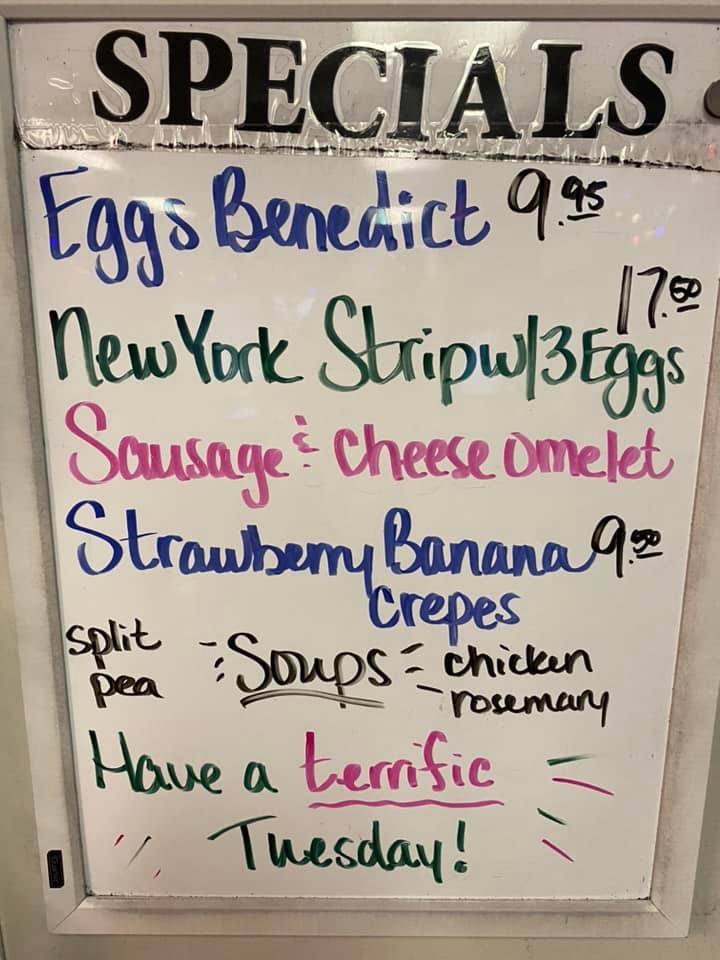 SPECIALS
Eggs Benedict 9.95
17.50
New York Strip w/3 Eggs
Sausage & Cheese Omelet
Strawberry Banana 9.50
Crepes
split pea
Soups
chicken rosemary
Have a terrific
Tuesday!